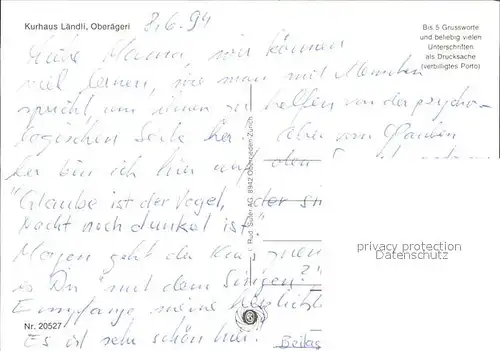 Kurhaus Ländli, Oberägeri
8.6.94
Bis 5 Grussworte
und beliebig vielen
Unterschriften
als Drucksache
(verbilligtes Porto)
Liebe Mama, wir können
viel lernen, wie man mit Menschen
spricht, um ihnen zu helfen von der psycho-
logischen Seite her. Aber vom Glauben
her bin ich hier auf den
"Glaube ist der Vogel, der sin
Nacht noch dunkel ist."
Morgen geht der Kurs zuen
es Dir mit dem Singen?
Empfange meine herzlichst
Es ist sehr schön hier.
Beilag
Nr. 20527
Rud. Suter AG, 8942 Oberrieden-Zürich
privacy protection
Datenschutz